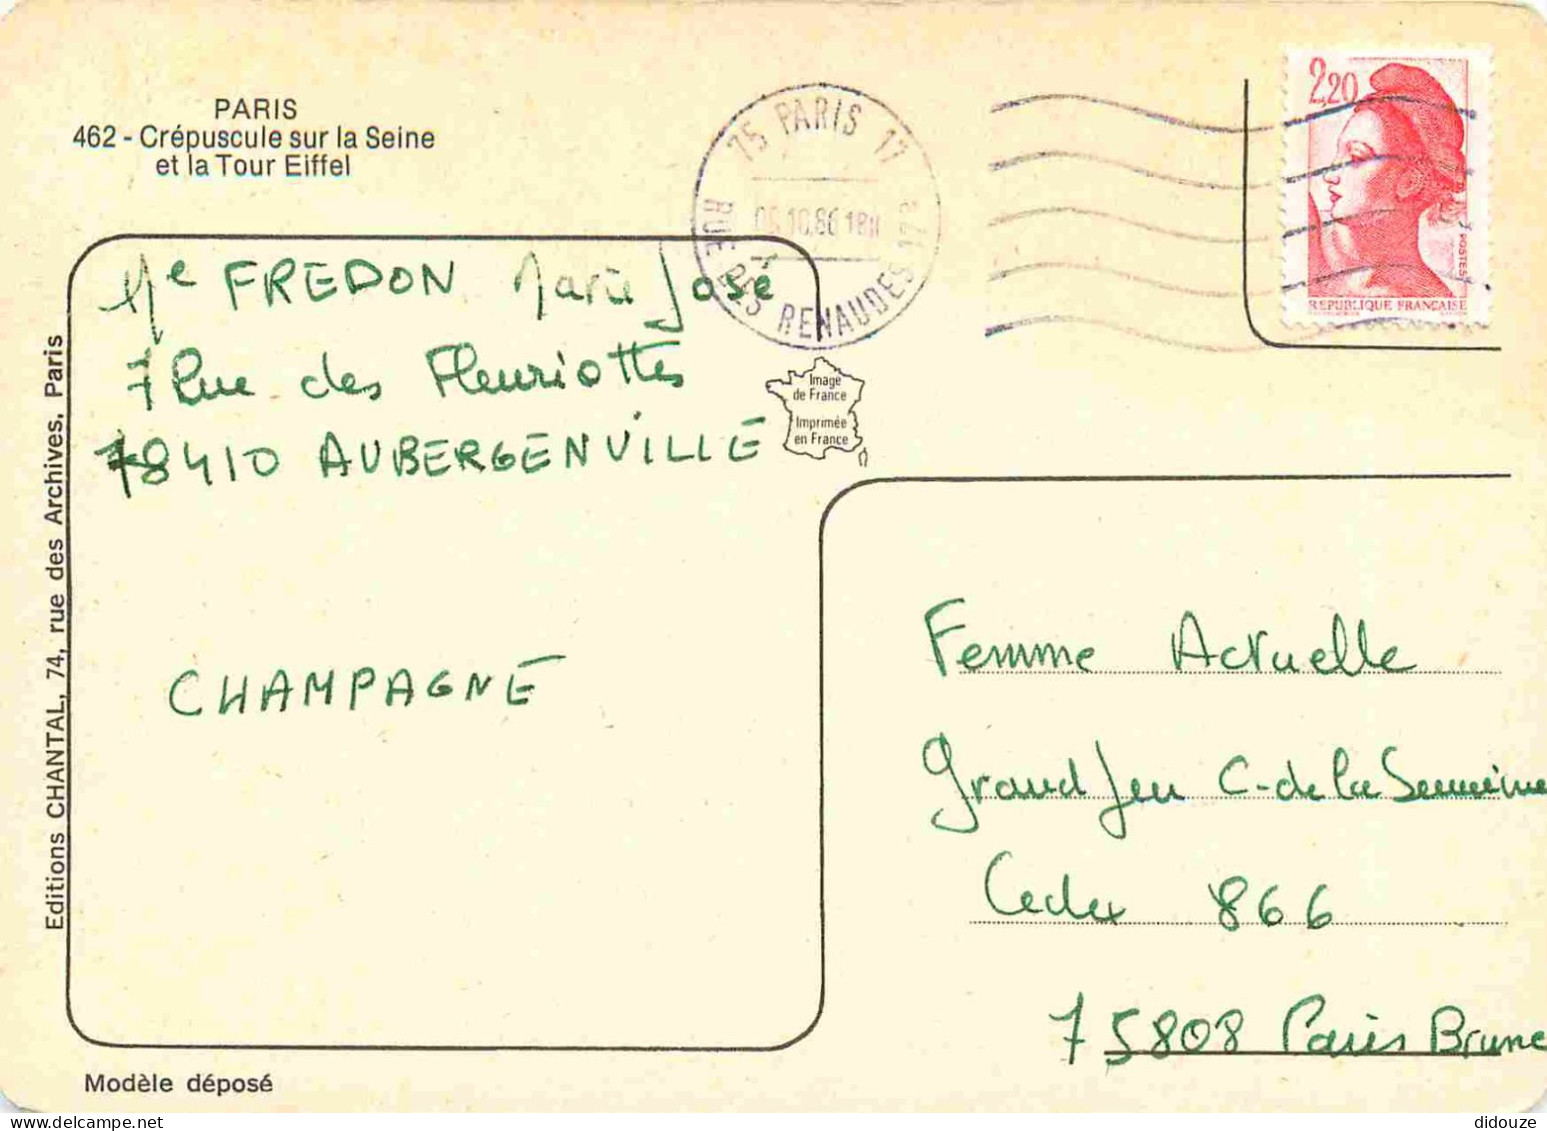 PARIS
462 - Crépuscule sur la Seine
et la Tour Eiffel
75 PARIS 17
RUE DES RENAUDES 172
06.10.86 18H
2,20
POSTES
REPUBLIQUE FRANÇAISE
Me FREDON Marie José
7 Rue des Fleuriottes
78410 AUBERGENVILLE
CHAMPAGNE
Image
de France
Imprimée
en France
Femme Actuelle
Grand Jeu C-de la Semaine
Cedex 866
75808 Paris Brune
Editions CHANTAL, 74, rue des Archives. Paris
Modèle déposé
didouze